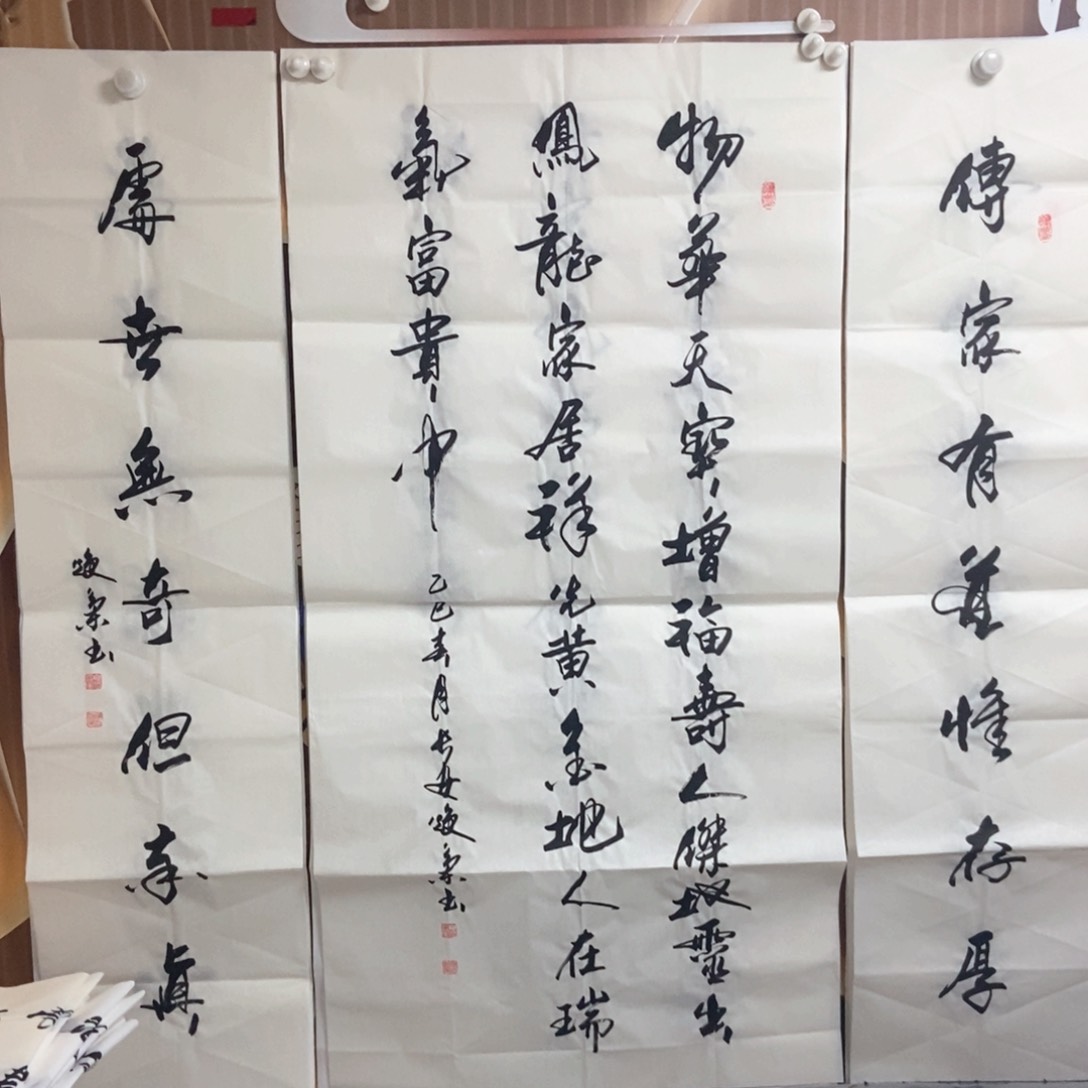 傳家有道惟存厚
物華天寶增福壽人傑地靈出
鳳龍家居祥光黃金地人在瑞
氣富貴中
乙巳春月長安煥書
處世無奇但率真
煥書